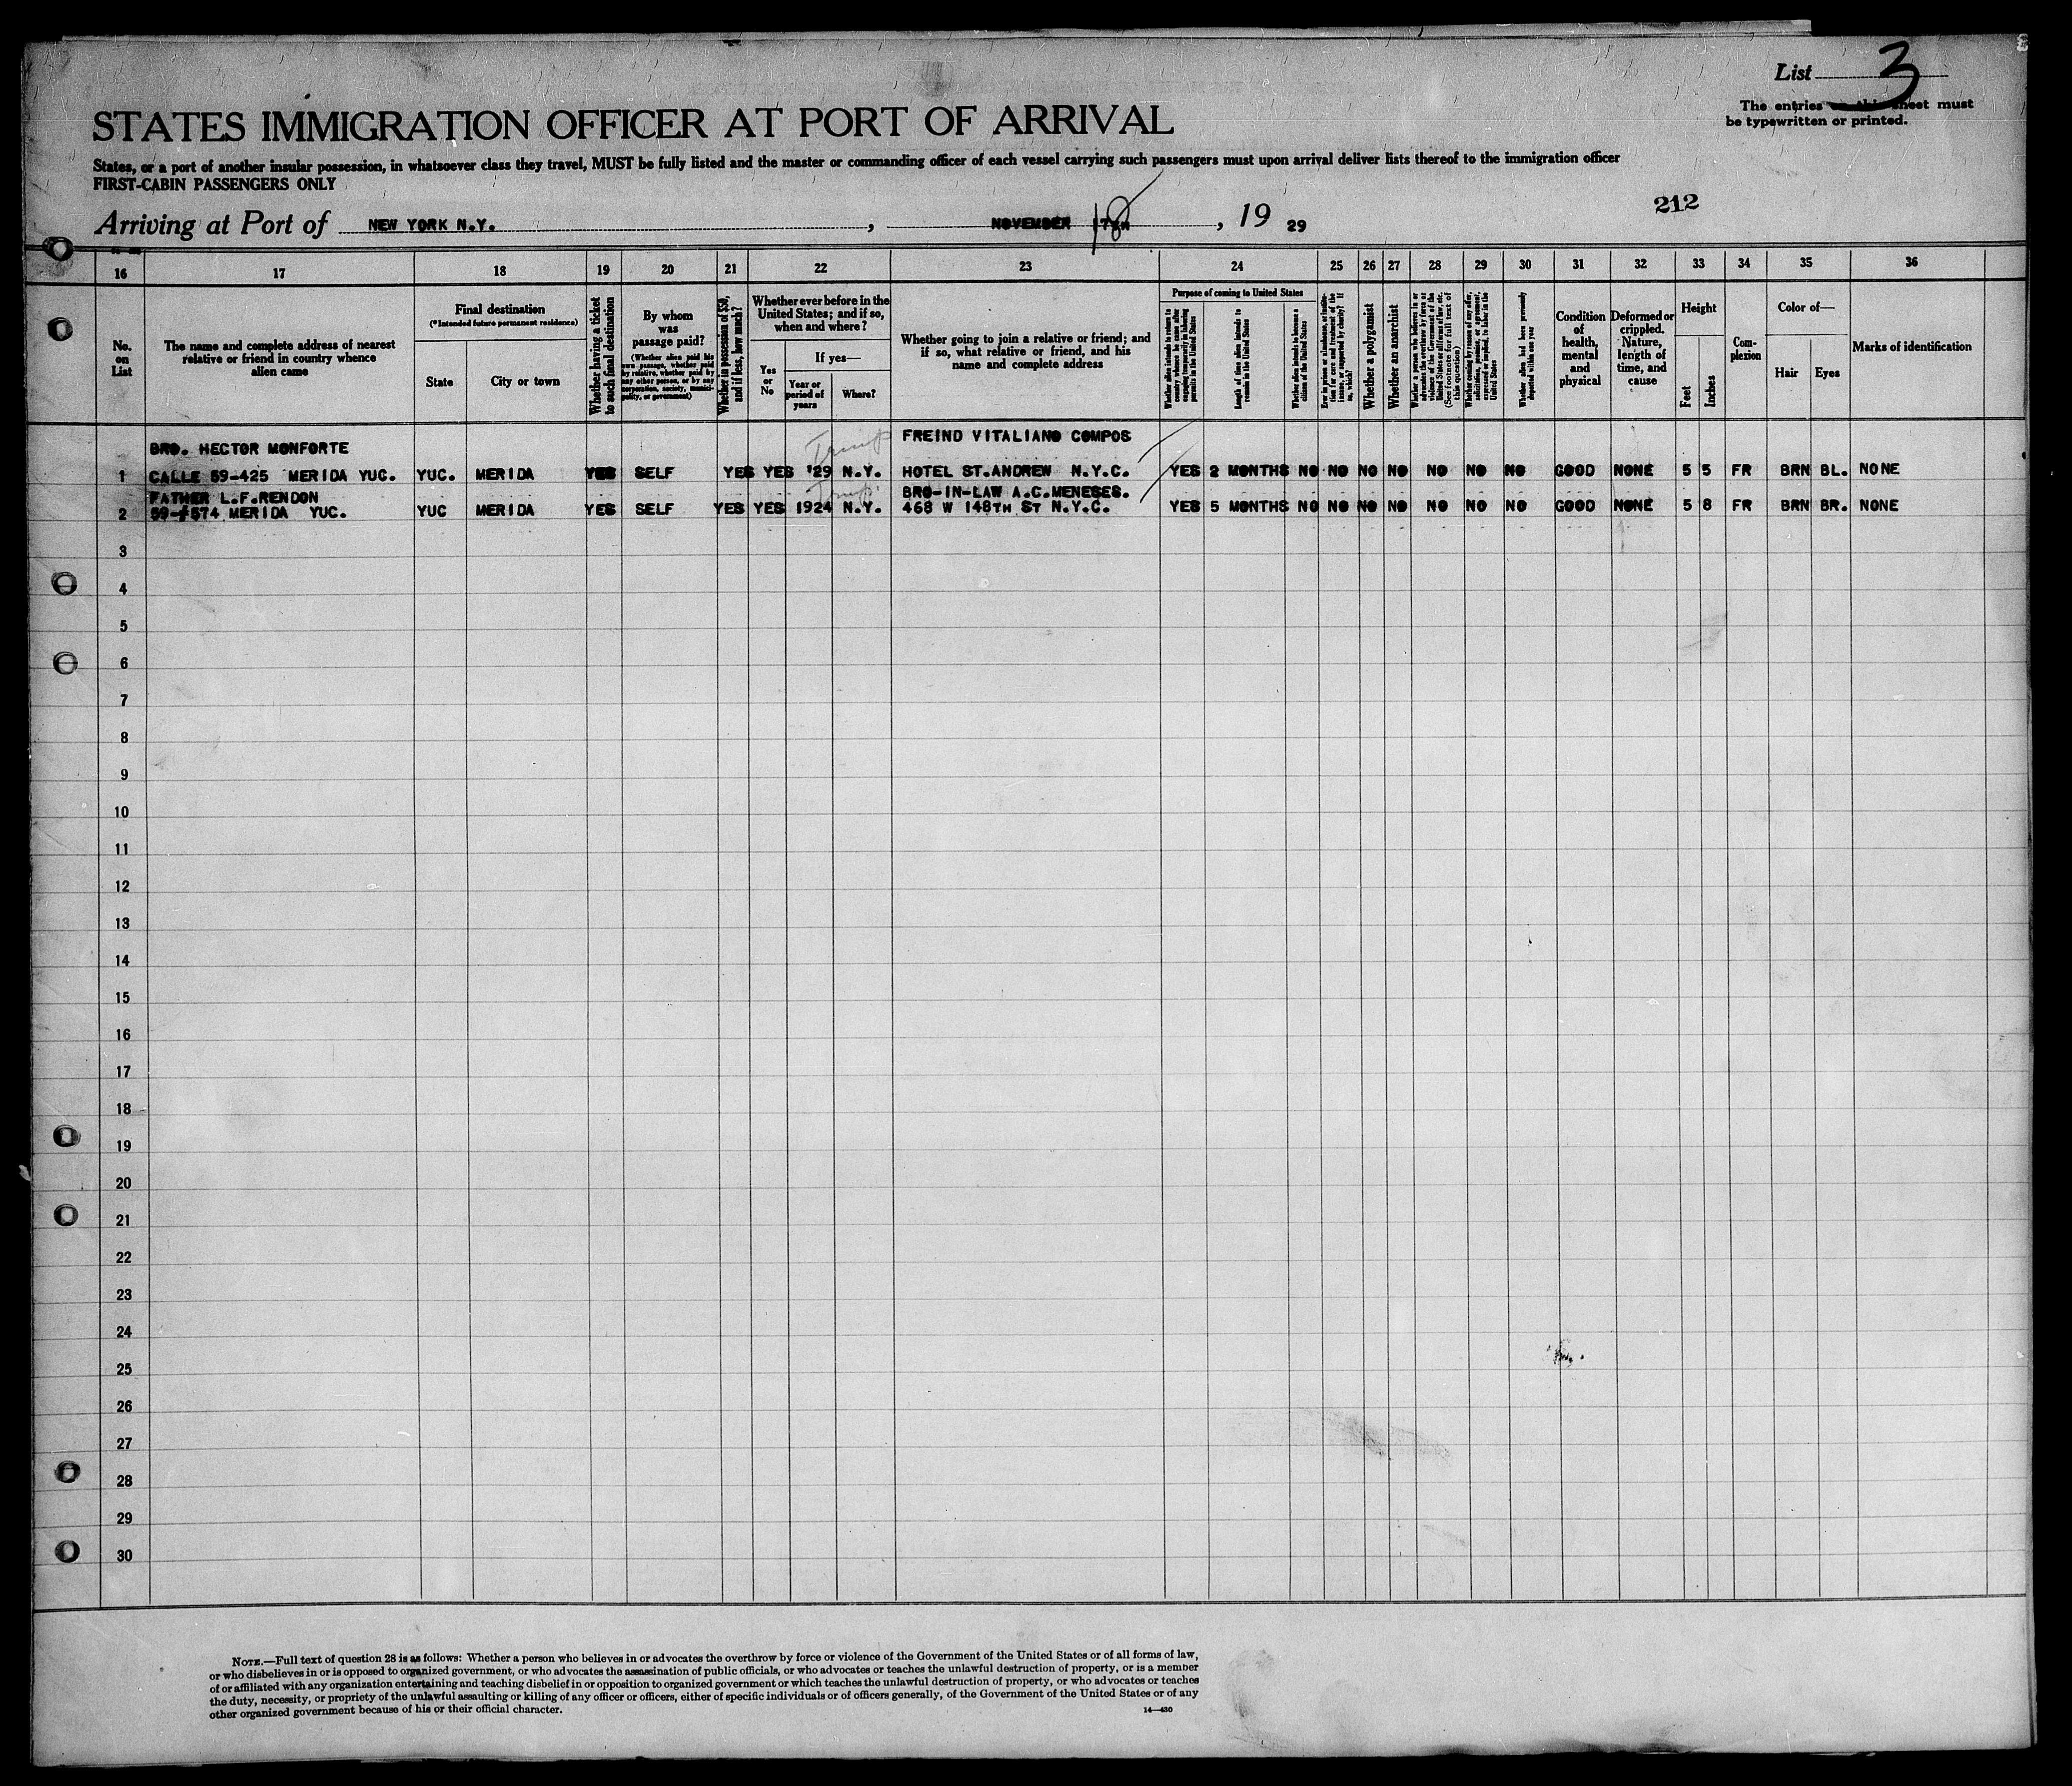 List 3
The entries on this sheet must
be typewritten or printed.
STATES IMMIGRATION OFFICER AT PORT OF ARRIVAL
States, or a port of another insular possession, in whatsoever class they travel, MUST be fully listed and the master or commanding officer of each vessel carrying such passengers must upon arrival deliver lists thereof to the immigration officer
FIRST-CABIN PASSENGERS ONLY
212
Arriving at Port of NEW YORK N.Y. , NOVEMBER 18 , 19 29
16 17 18 19 20 21 22 23 24 25 26 27 28 29 30 31 32 33 34 35 36
No. on List
The name and complete address of nearest relative or friend in country whence alien came
Final destination
(*Intended future permanent residence)
State
City or town
Whether having a ticket to such final destination
By whom was passage paid?
(Whether alien paid his own passage, whether paid by relative, whether paid by any other person, or by any corporation, society, municipality, or government)
Whether in possession of $50, and if less, how much?
Whether ever before in the United States; and if so, when and where?
Yes or No
If yes—
Year or period of years
Where?
Whether going to join a relative or friend; and if so, what relative or friend, and his name and complete address
Purpose of coming to United States
Whether alien intends to return to country whence he came after engaging temporarily in laboring pursuits in the United States
Length of time alien intends to remain in the United States
Whether alien intends to become a citizen of the United States
Ever in prison or almshouse, or institution for care and treatment of the insane, or supported by charity? If so, which?
Whether a polygamist
Whether an anarchist
Whether a person who believes in or advocates the overthrow by force or violence of the Government of the United States or all forms of law, etc. (See footnote for full text of this question)
Whether coming by reason of any offer, solicitation, promise, or agreement, expressed or implied, to labor in the United States
Whether alien had been previously deported within one year
Condition of health, mental and physical
Deformed or crippled. Nature, length of time, and cause
Height
Feet
Inches
Complexion
Color of—
Hair
Eyes
Marks of identification
BRO. HECTOR MONFORTE FREIND VITALIANO COMPOS
1 CALLE 59-425 MERIDA YUC. YUC. MERIDA YES SELF YES YES '29 N.Y. HOTEL ST.ANDREW N.Y.C. YES 2 MONTHS NO NO NO NO NO NO NO GOOD NONE 5 5 FR BRN BL. NONE
FATHER L.F.RENDON BRO-IN-LAW A.C.MENESES.
2 59-574 MERIDA YUC. YUC MERIDA YES SELF YES YES 1924 N.Y. 468 W 148TH ST N.Y.C. YES 5 MONTHS NO NO NO NO NO NO NO GOOD NONE 5 8 FR BRN BR. NONE
3
4
5
6
7
8
9
10
11
12
13
14
15
16
17
18
19
20
21
22
23
24
25
26
27
28
29
30
NOTE.—Full text of question 28 is as follows: Whether a person who believes in or advocates the overthrow by force or violence of the Government of the United States or of all forms of law,
or who disbelieves in or is opposed to organized government, or who advocates the assassination of public officials, or who advocates or teaches the unlawful destruction of property, or is a member
of or affiliated with any organization entertaining and teaching disbelief in or opposition to organized government or which teaches the unlawful destruction of property, or who advocates or teaches
the duty, necessity, or propriety of the unlawful assaulting or killing of any officer or officers, either of specific individuals or of officers generally, of the Government of the United States or of any
other organized government because of his or their official character.
14—430